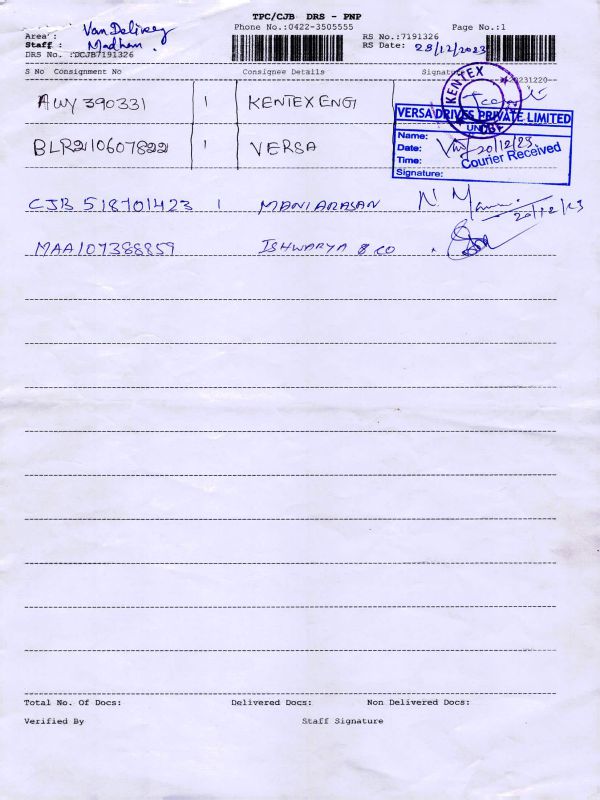 TPC/CJB DRS - PNP
Area : Van Delivery Phone No.:0422-3505555 Page No.:1
Staff : Madhan. RS No.:7191326
DRS No. :DCJB7191326 RS Date: 28/12/2023
S No Consignment No Consignee Details Signature 20231220--
AWY 390331 1 KENTEX ENG
KENTEX
CBE
VERSA DRIVES PRIVATE LIMITED
BLR2110607822 1 VERSA
Name:
Date: 20/12/23
Time: Courier Received
Signature:
CJB 518701423 1 MANIARASAN N. 20/12/23
MAA107388859 ISHWARYA & CO
Total No. Of Docs: Delivered Docs: Non Delivered Docs:
Verified By Staff Signature